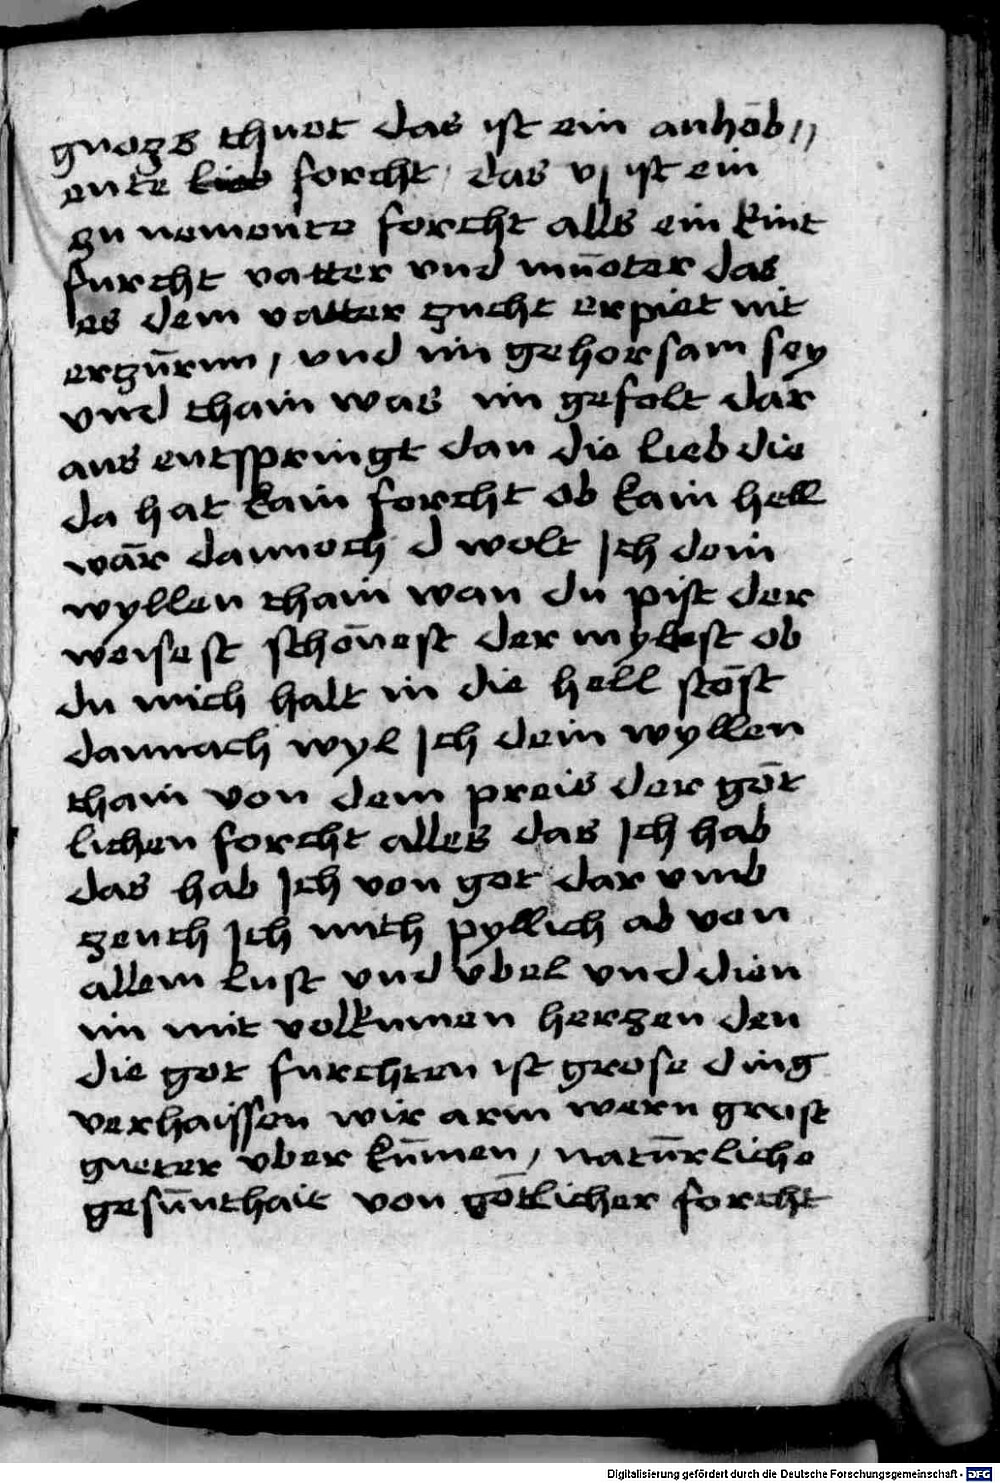 guozs thuet das ist ein anhöb〃
ente lieb forcht / das vj ist ein
zu nemente forcht alls ein kint
furcht vatter vnd mūoter das
es dem vatter zucht erpiet nit
erzürnn / vnd im gehorsam sey
vnd thain was im gefolt dar
aus entspringt dan die lieb die
da hat kain forcht ob kain hell
wär dannoch d wolt Jch dein
wyllen thain wan du pist der
weisest schönest der myltest ob
du mich halt in die hell stöst
dannach wyl Jch dein wyllen
thain von dem preis der göt
lichen forcht alles das Jch hab
das hab Jch von got dar vmb
zeuch Jch mich pyllich ab von
allem lust vnd vbel vnd dien
im mit volkumen herzen den
die got furchten ist grose ding
verhaissen wir arm wern groist
gueter vber kūmen / natürliche
gesünthait von götlicher forcht
Digitalisierung gefördert durch die Deutsche Forschungsgemeinschaft - DFG